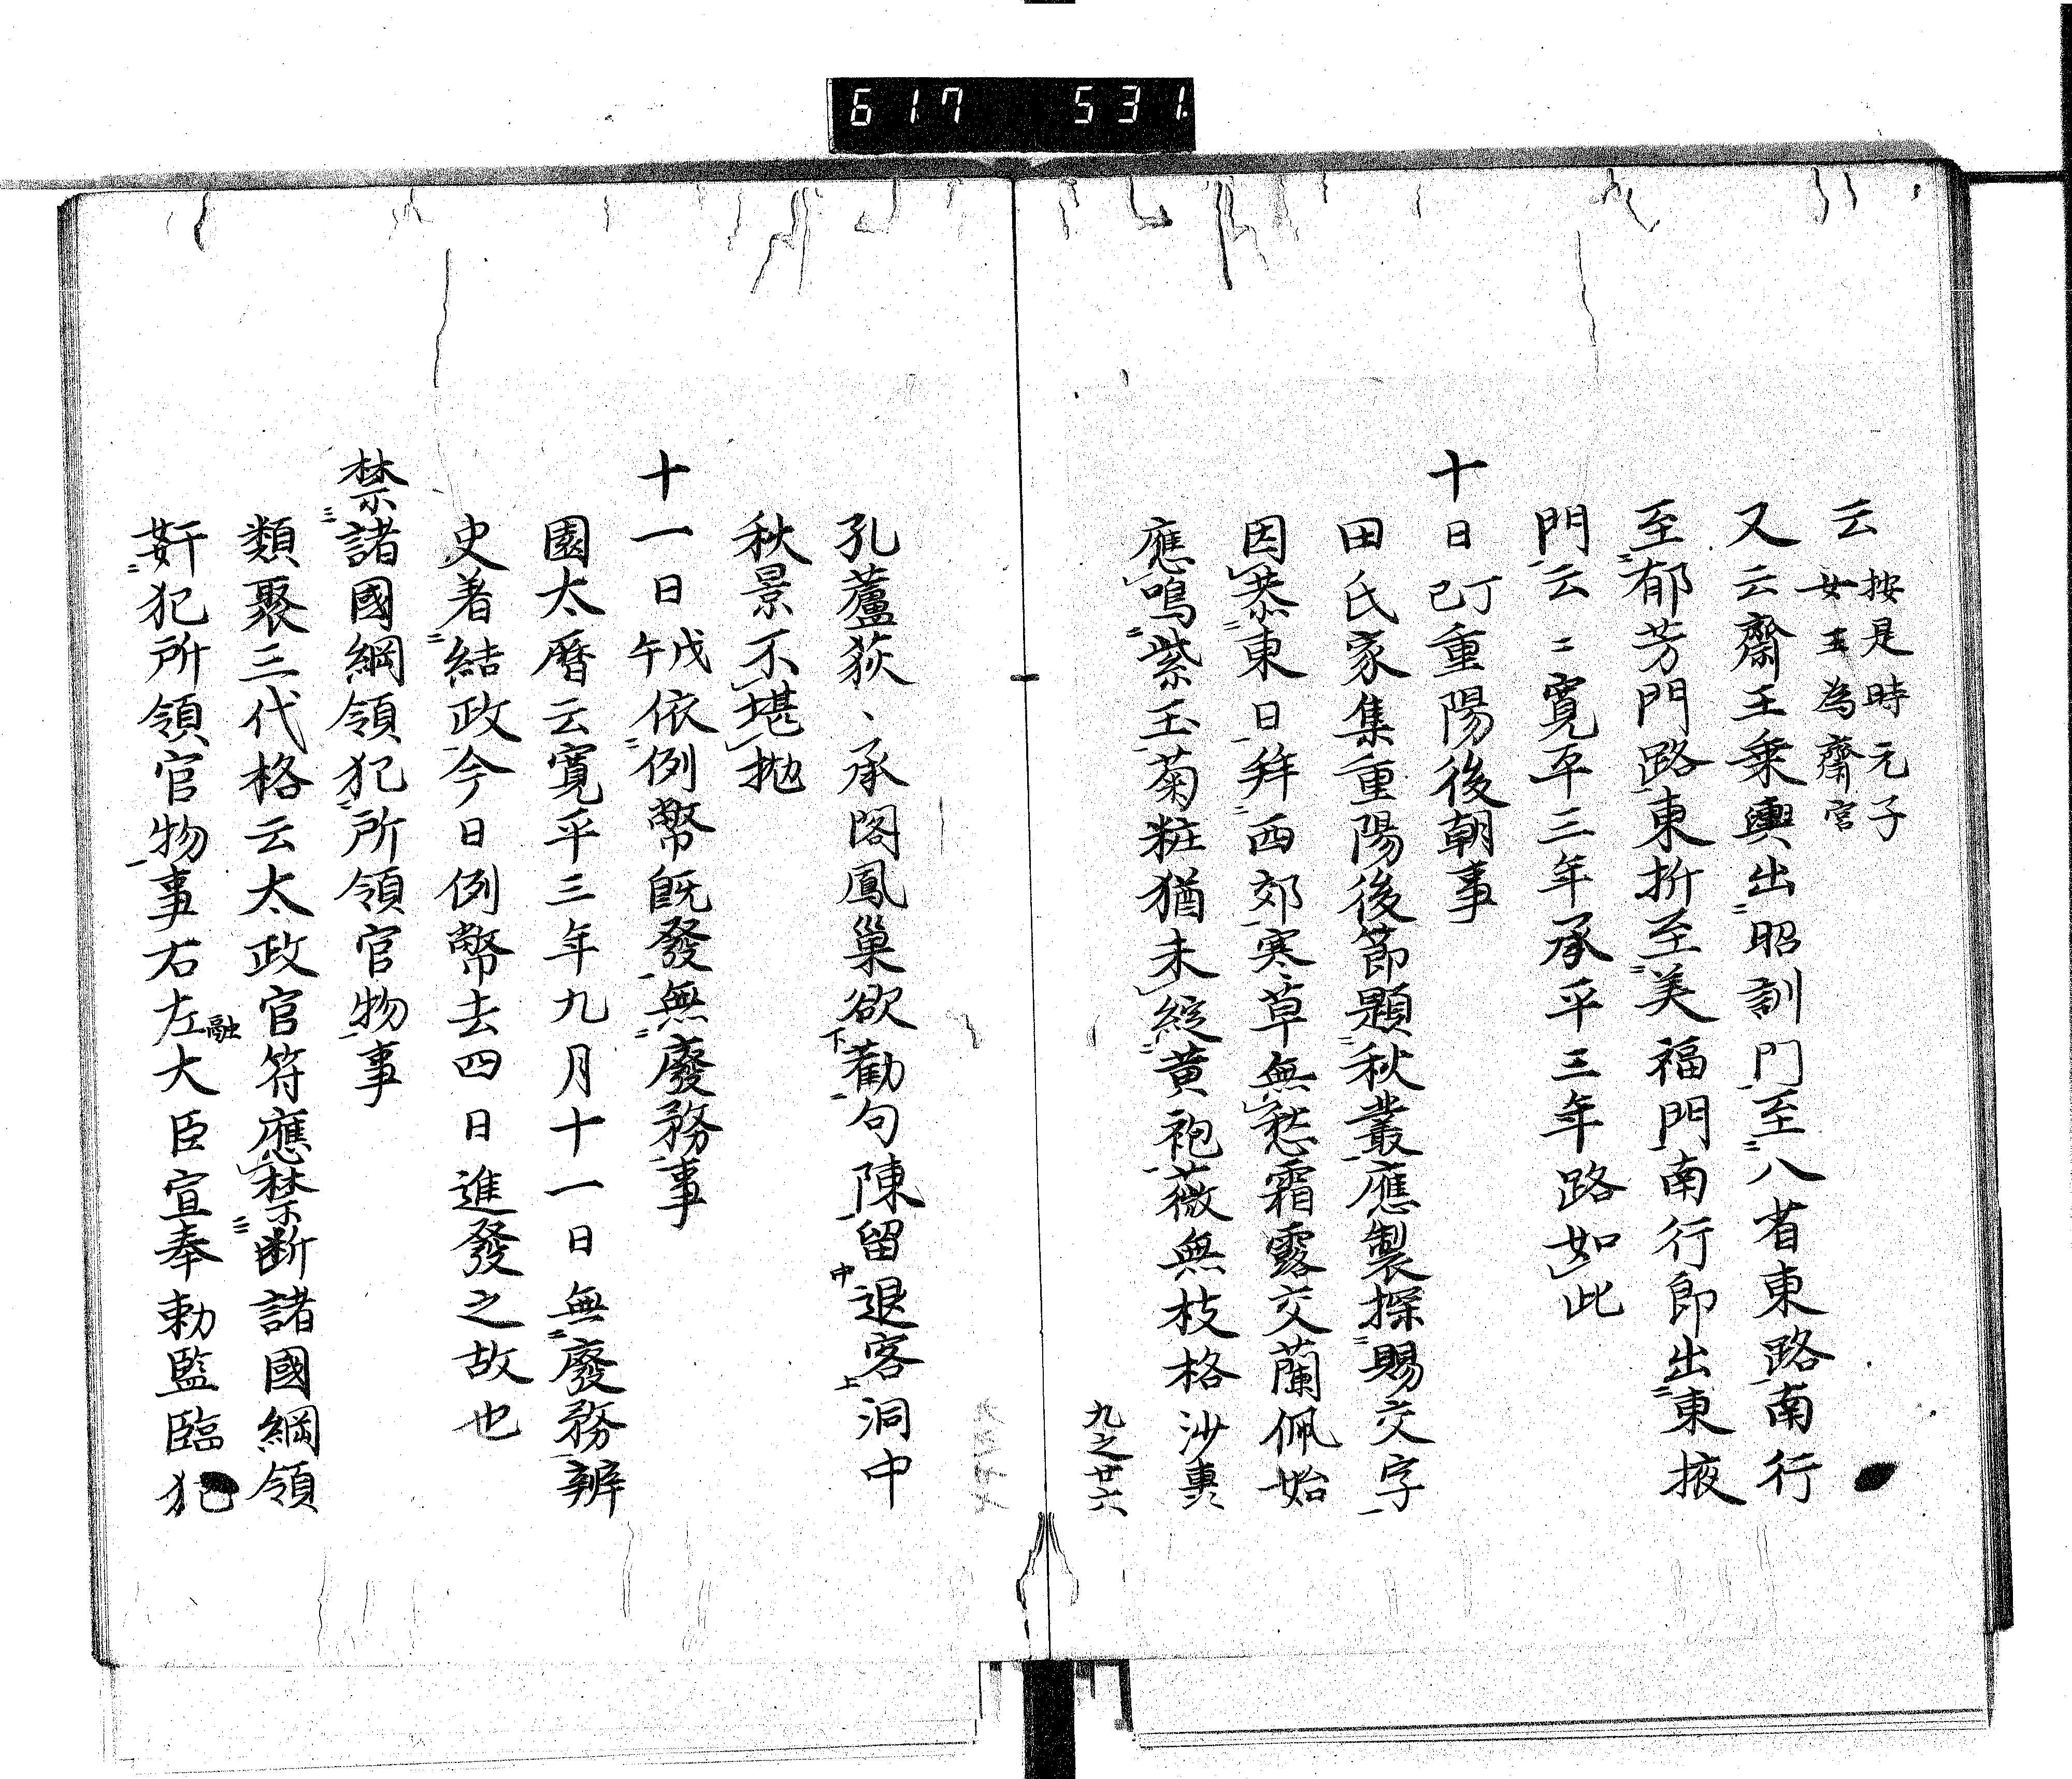 617 531.
云 按是時元子
女王為齋宮
又云齋王乗輿出昭訓門至八省東路南行
至郁芳門路東折至美福門南行即出東掖
門云〻寛平三年承平三年路如此
十日丁巳重陽後朝事
田氏家集重陽後節題秋叢應製探賜交字
因恭東日拜西郊寒草無愁霜露交蘭佩始
應鳴紫玉菊粧猶未綻黄袍薇無枝格沙裹
九之廿六
孔蘆荻、承閣鳳巢欲勸句陳留退客洞中
下 中 上
秋景不堪抛
十一日戊午依例幣既發無廢務事
園太曆云寛平三年九月十一日無廢務辨
史着結政今日例幣去四日進發之故也
禁諸國綱領犯所領官物事
類聚三代格云太政官符應禁断諸國綱領
奸犯所領官物事右左大臣宣奉勅監臨犯
融